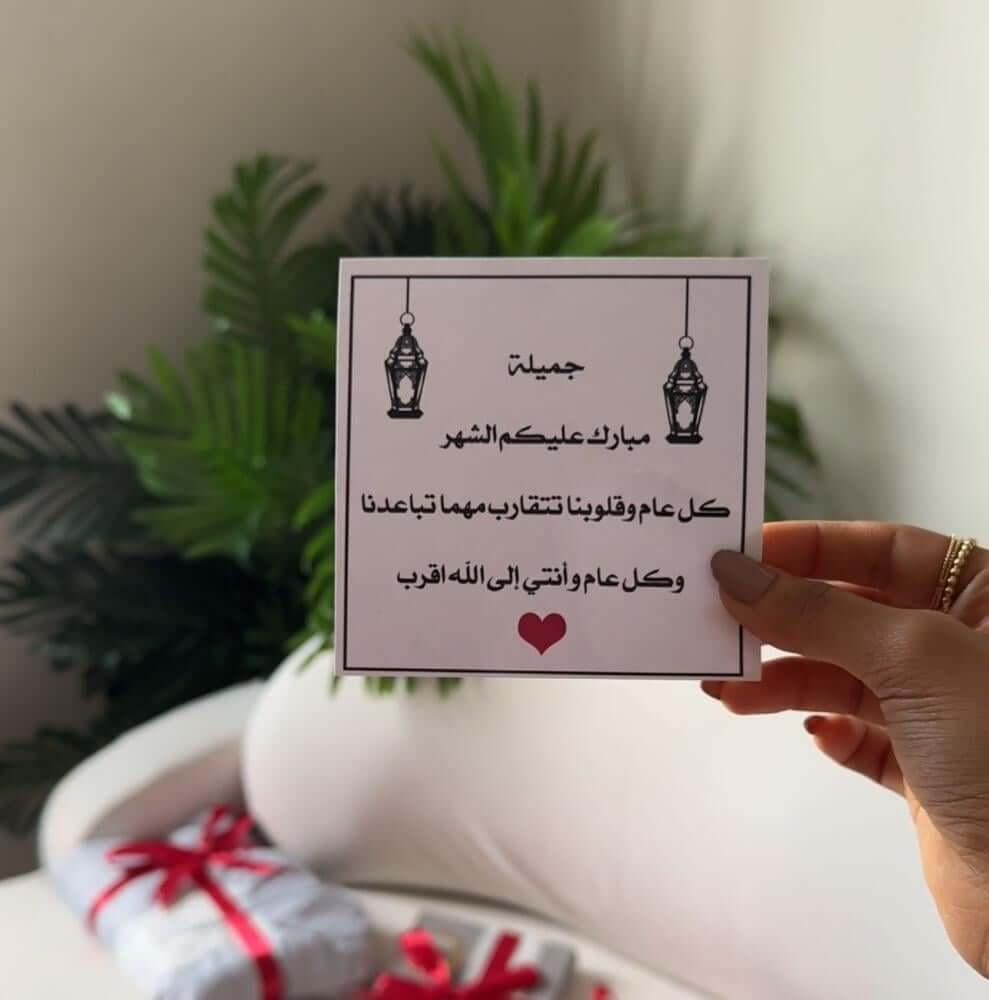 جميلة
مبارك عليكم الشهر
كل عام وقلوبنا تتقارب مهما تباعدنا
وكل عام وأنتي إلى الله اقرب